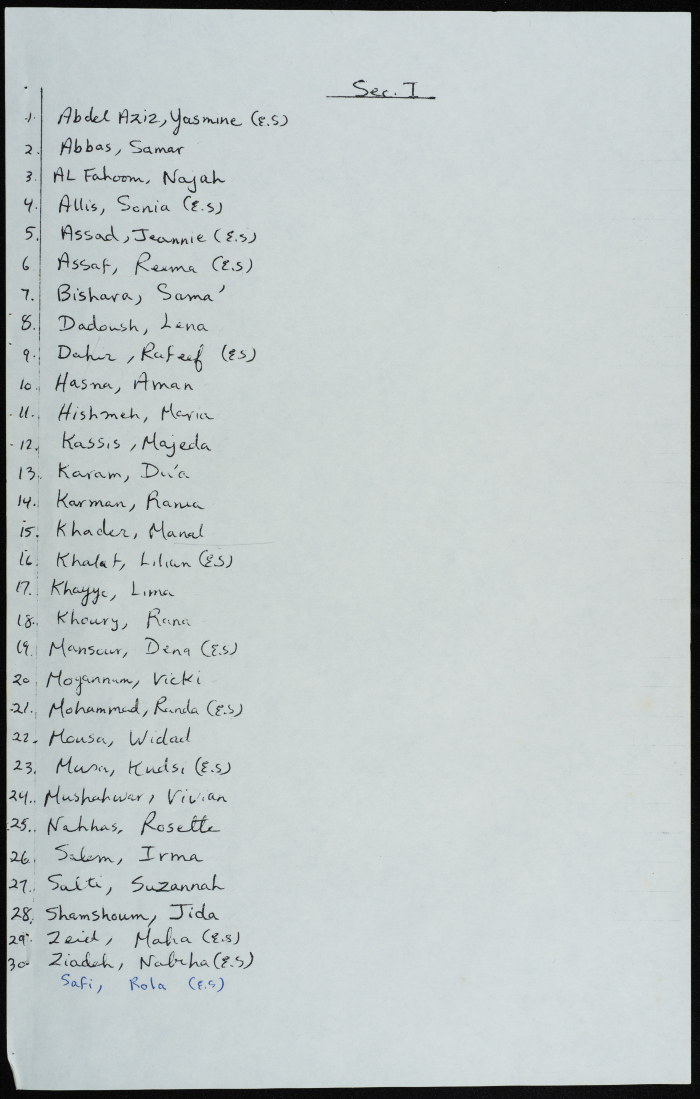 Sec. I
1. Abdel Aziz, Yasmine (E.S)
2. Abbas, Samar
3. AL Fahoom, Najah
4. Allis, Sonia (E.S)
5. Assad, Jeannie (E.S)
6 Assaf, Reema (E.S)
7. Bishara, Sama'
8. Dadoush, Lena
9. Daher, Rafeef (E.S)
10. Hasna, Aman
11. Hishmeh, Maria
12. Kassis, Majeda
13. Karam, Du'a
14. Karman, Rania
15. Khader, Manal
16. Khalaf, Lilian (E.S)
17. Khayyo, Lima
18. Khoury, Rana
19. Mansour, Dena (E.S)
20 Mogannam, Vicki
21. Mohammad, Randa (E.S)
22. Mousa, Widad
23. Musa, Kudsi (E.S)
24. Mushahwar, Vivian
25. Nahhas, Rosette
26. Salem, Irma
27. Salti, Suzannah
28. Shamshoum, Jida
29. Zeid, Maha (E.S)
30. Ziadeh, Nabiha (E.S)
Safi, Rola (E.S)